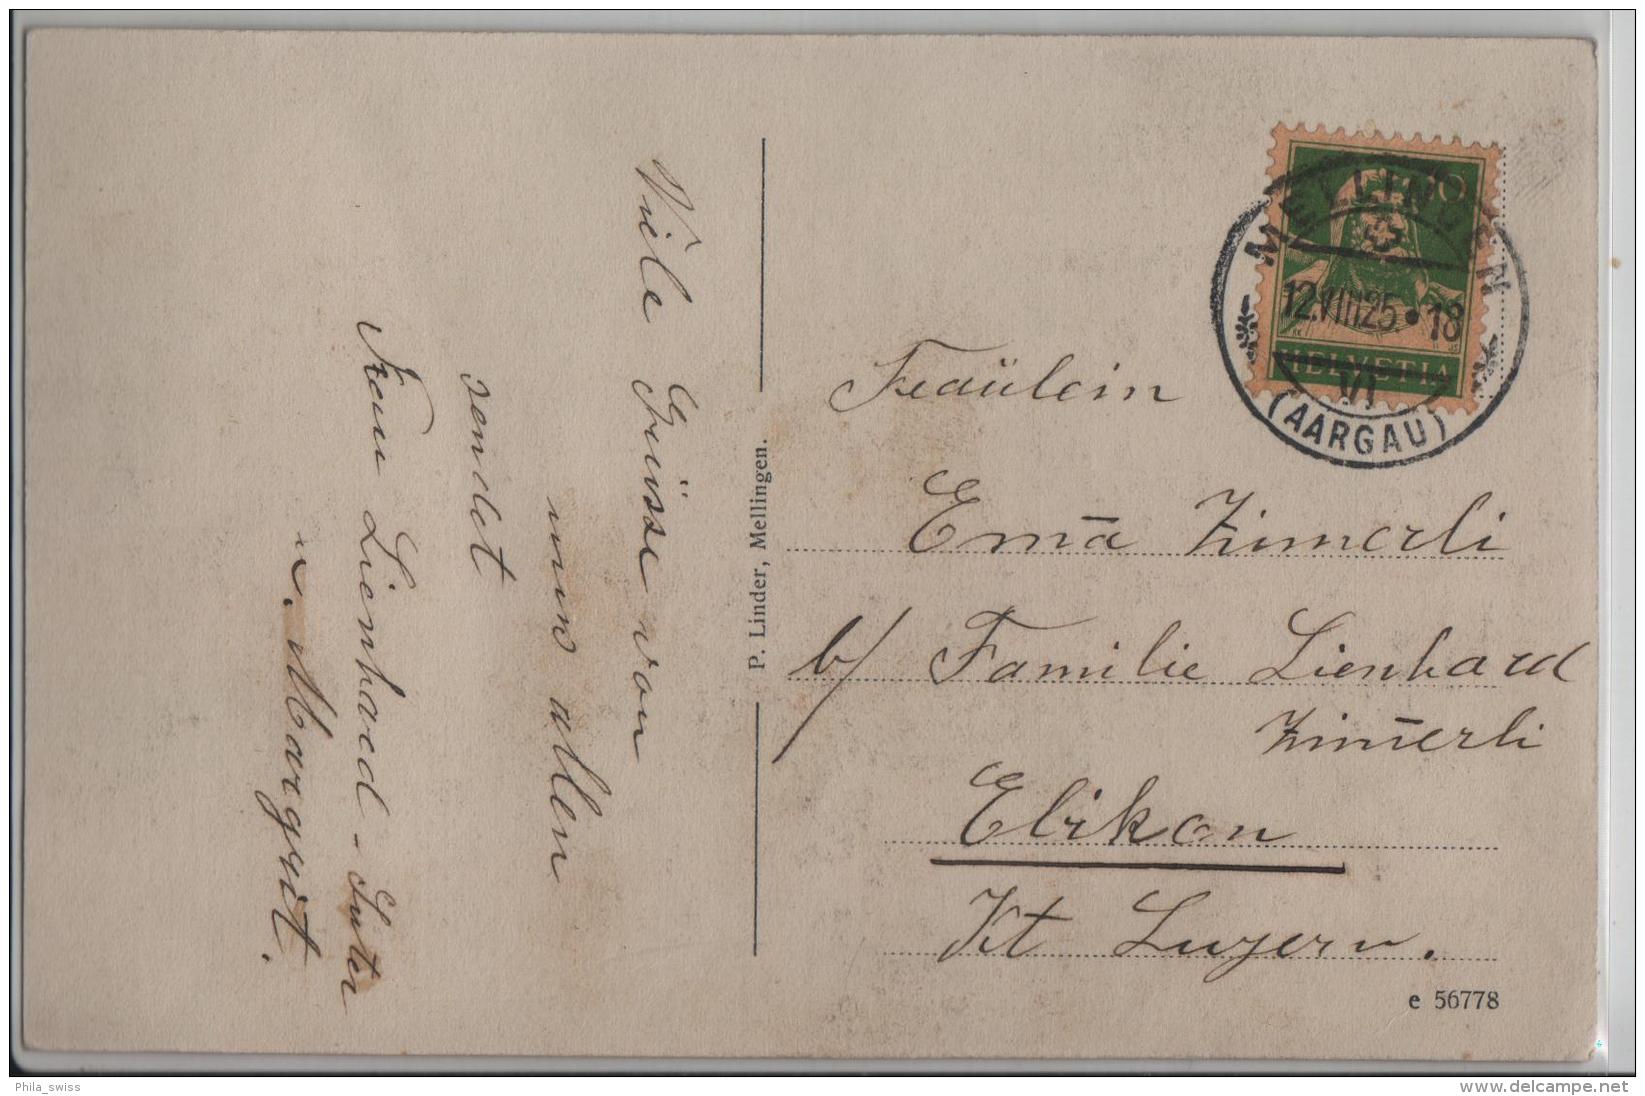 Viele Grüsse von
uns allen
sendet
Frau Lienhard-Suter
u. Margrit.
P. Linder, Mellingen.
10
HELVETIA
MELLINGEN
12.VIII25•18
VI
(AARGAU)
Fräulein
Em̄a Zimerli
b/ Familie Lienhard
Zim̄erli
Ebikon
Kt Luzern.
e 56778
Phila_swiss
www.delcampe.net